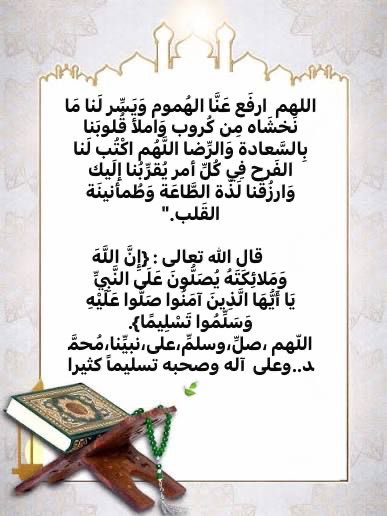 اللهم ارفَع عَنَّا الهُموم وَيَسِّر لَنا مَا
نَخشَاه مِن كُروب وَاملأ قُلوبَنا
بِالسَّعادة وَالرِّضا اللَّهُم اكْتُب لَنا
الفَرح فِي كُلِّ أمر يُقرِّبُنا إلَيك
وَارزُقنا لَذَّة الطَّاعَة وَطُمأنينَة
القَلب."
قال الله تعالى : {إِنَّ اللَّهَ
وَمَلائِكَتَهُ يُصَلُّونَ عَلَى النَّبِيِّ
يَا أَيُّهَا الَّذِينَ آمَنُوا صَلُّوا عَلَيْهِ
وَسَلِّمُوا تَسْلِيمًا}.
اللّهم ،صلِّ،وسلمِّ،على،نبيِّنا،مُحمَّ
د..وعلى آله وصحبه تسليماً كثيرا